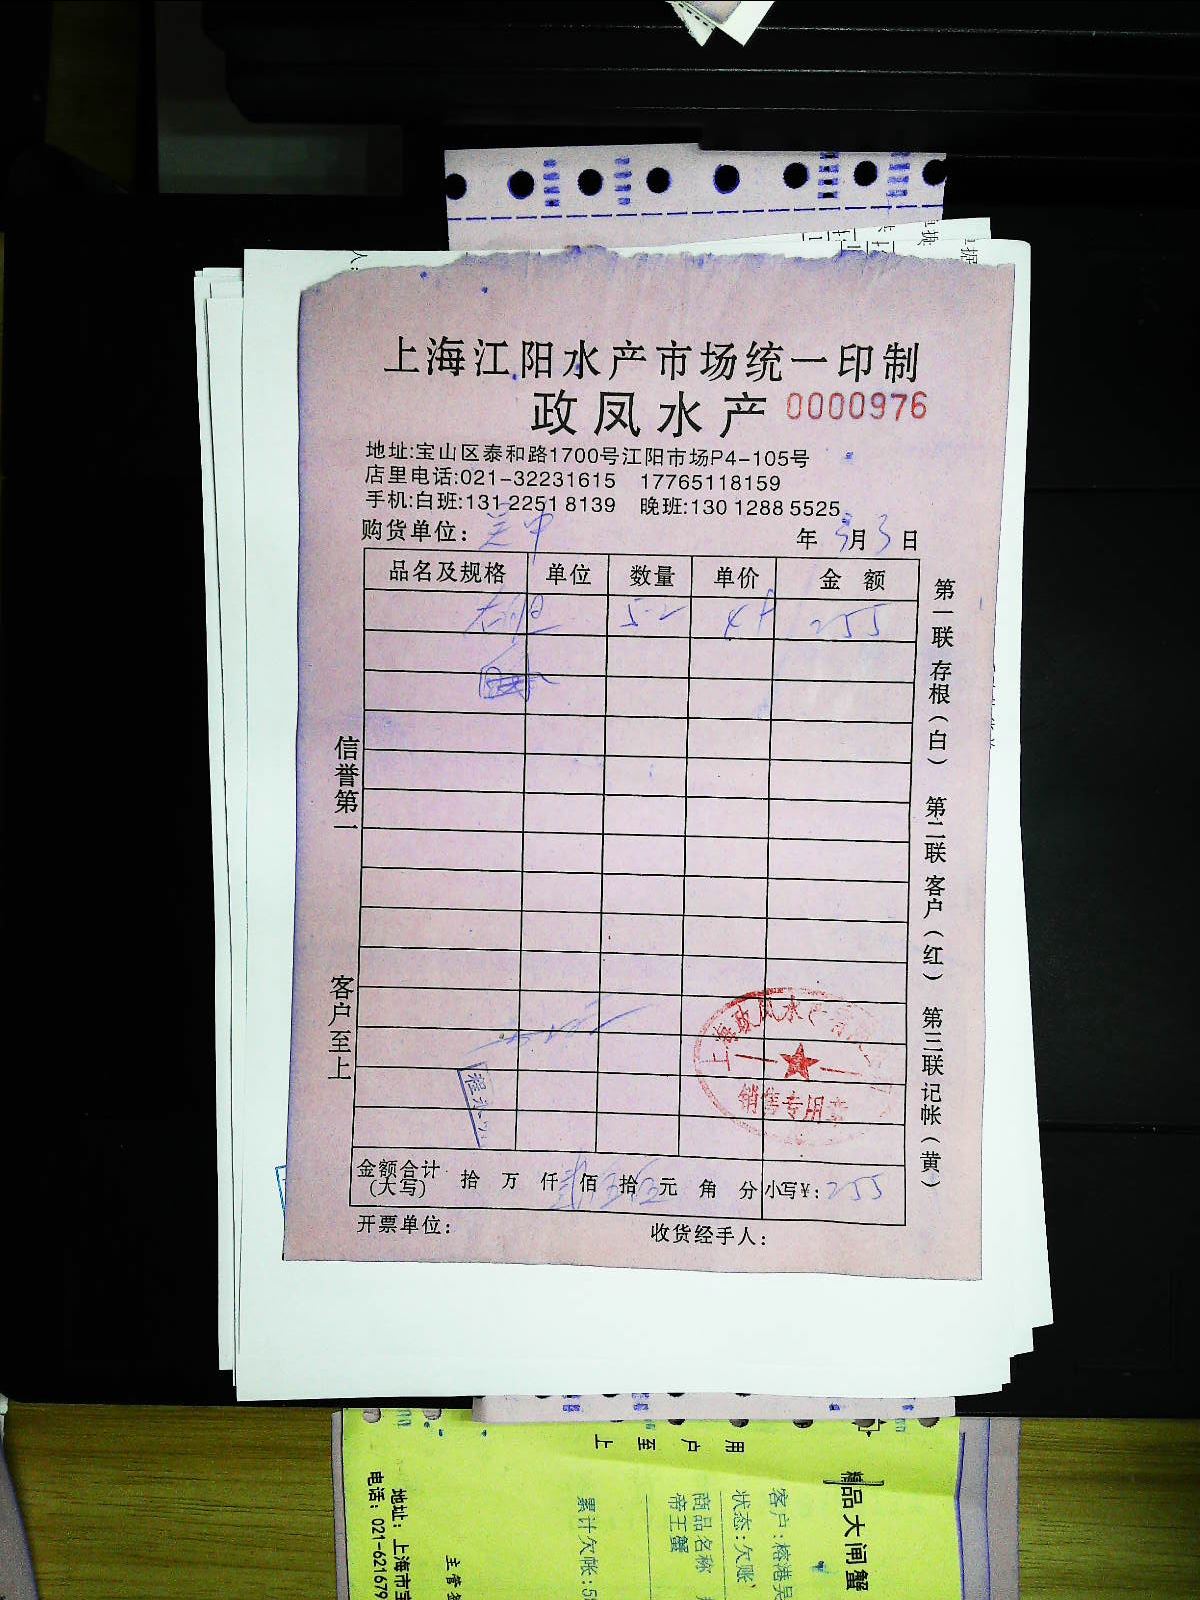 上海江阳水产市场统一印制
政凤水产 0000976
地址:宝山区泰和路1700号江阳市场P4-105号
店里电话:021-32231615 17765118159
手机:白班:131 2251 8139 晚班:130 1288 5525
购货单位: 吴中 年 3月 3日
品名及规格 单位 数量 单价 金 额
5-2 255
信誉第一
客户至上
第一联 存根(白) 第二联 客户(红) 第三联 记帐(黄)
上海政凤水产有
销售专用章
金额合计(大写) 拾 万 仟 佰 拾 元 角 分 小写¥: 255
开票单位: 收货经手人:
用户至上
精品大闸蟹
客户:榕港吴
状态:欠账
商品名称
帝王蟹
累计欠帐:5
主管
地址:上海市宝
电话:021-621679